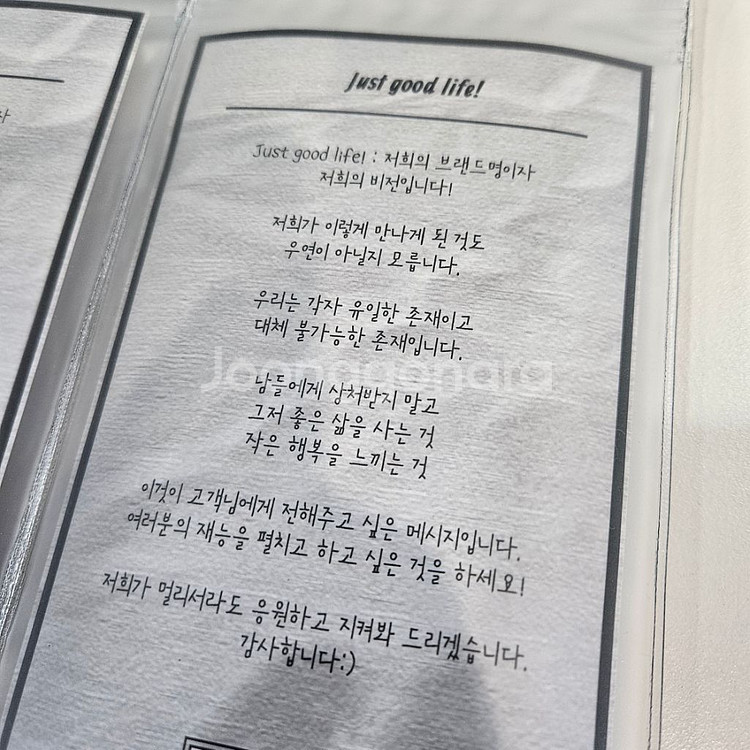 Just good life!
Just good life! : 저희의 브랜드명이자
저희의 비전입니다!
저희가 이렇게 만나게 된 것도
우연이 아닐지 모릅니다.
우리는 각자 유일한 존재이고
대체 불가능한 존재입니다.
남들에게 상처받지 말고
그저 좋은 삶을 사는 것
작은 행복을 느끼는 것
이것이 고객님에게 전해주고 싶은 메시지입니다.
여러분의 재능을 펼치고 하고 싶은 것을 하세요!
저희가 멀리서라도 응원하고 지켜봐 드리겠습니다.
감사합니다:)